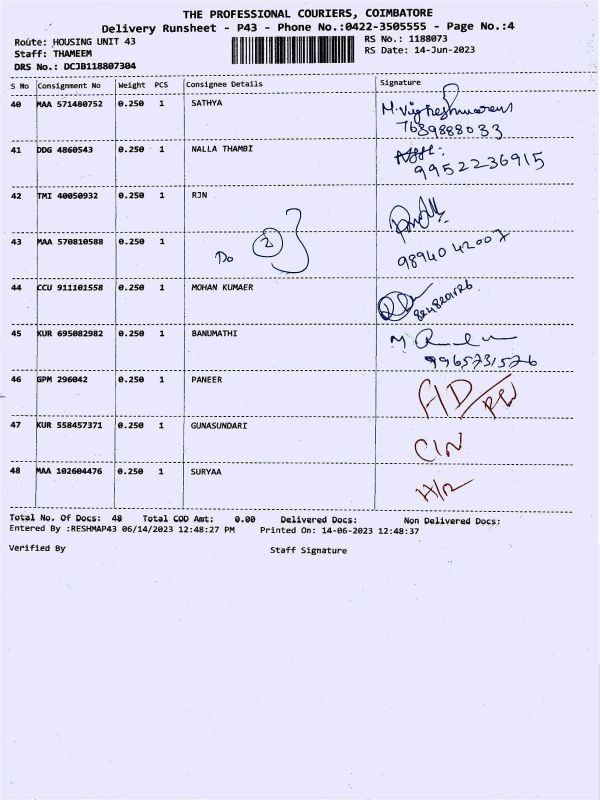 THE PROFESSIONAL COURIERS, COIMBATORE
Delivery Runsheet - P43 - Phone No.:0422-3505555 - Page No.:4
Route: HOUSING UNIT 43
RS No.: 1188073
Staff: THAMEEM
RS Date: 14-Jun-2023
DRS No.: DCJB118807304
S No Consignment No Weight PCS Consignee Details Signature
40 MAA 571480752 0.250 1 SATHYA M.Vigneshwaren
7639888033
41 DDG 4860543 0.250 1 NALLA THAMBI
9952236915
42 TMI 40050932 0.250 1 RJN
43 MAA 570810588 0.250 1 9894042007
Do 2
44 CCU 911101558 0.250 1 MOHAN KUMAER
45 KUR 695082982 0.250 1 BANUMATHI M
9965731526
46 GPM 296042 0.250 1 PANEER
47 KUR 558457371 0.250 1 GUNASUNDARI C/N
48 MAA 102604476 0.250 1 SURYAA H/R
Total No. Of Docs: 48 Total COD Amt: 0.00 Delivered Docs: Non Delivered Docs:
Entered By :RESHMAP43 06/14/2023 12:48:27 PM Printed On: 14-06-2023 12:48:37
Verified By Staff Signature